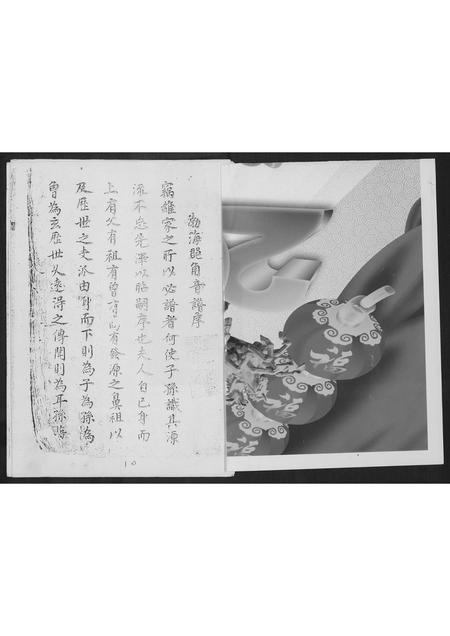 渤海郡角音譜序
竊維家之所以必譜者何使子孫識其源
流不忘先澤以貽嗣序也夫人自己身而
上有父有祖有曾有高有發源之鼻祖以
及歷世之支派由身而下則為子為孫為
曾為玄歷世久遠得之傳聞則為耳孫
10
福